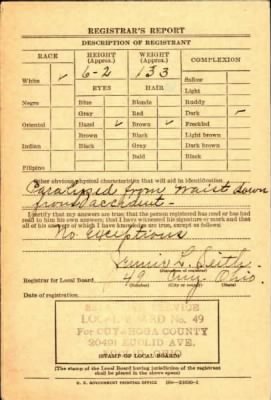 REGISTRAR'S REPORT
DESCRIPTION OF REGISTRANT
RACE HEIGHT (Approx.) WEIGHT (Approx.) COMPLEXION
White ✓ 6-2 133 Sallow
EYES HAIR Light
Negro Blue Blonde Ruddy
Gray Red Dark ✓
Oriental Hazel ✓ Brown ✓ Freckled
Brown Black Light brown
Indian Black Gray Dark brown
Bald Black
Filipino
Other obvious physical characteristics that will aid in identification
Paralized from waist down
from accident.
I certify that my answers are true; that the person registered has read or has had
read to him his own answers; that I have witnessed his signature or mark and that
all of his answers of which I have knowledge are true, except as follows:
No exceptions
L.
(Signature of registrar)
Registrar for Local Board 49 Cuy. Ohio.
(Number) (City or county) (State)
Date of registration
SERVICE
LOCAL BOARD No. 49
For CUYAHOGA COUNTY
20491 EUCLID AVE.
OHIO
(STAMP OF LOCAL BOARD)
(The stamp of the Local Board having jurisdiction of the registrant
shall be placed in the above space)
U. S. GOVERNMENT PRINTING OFFICE